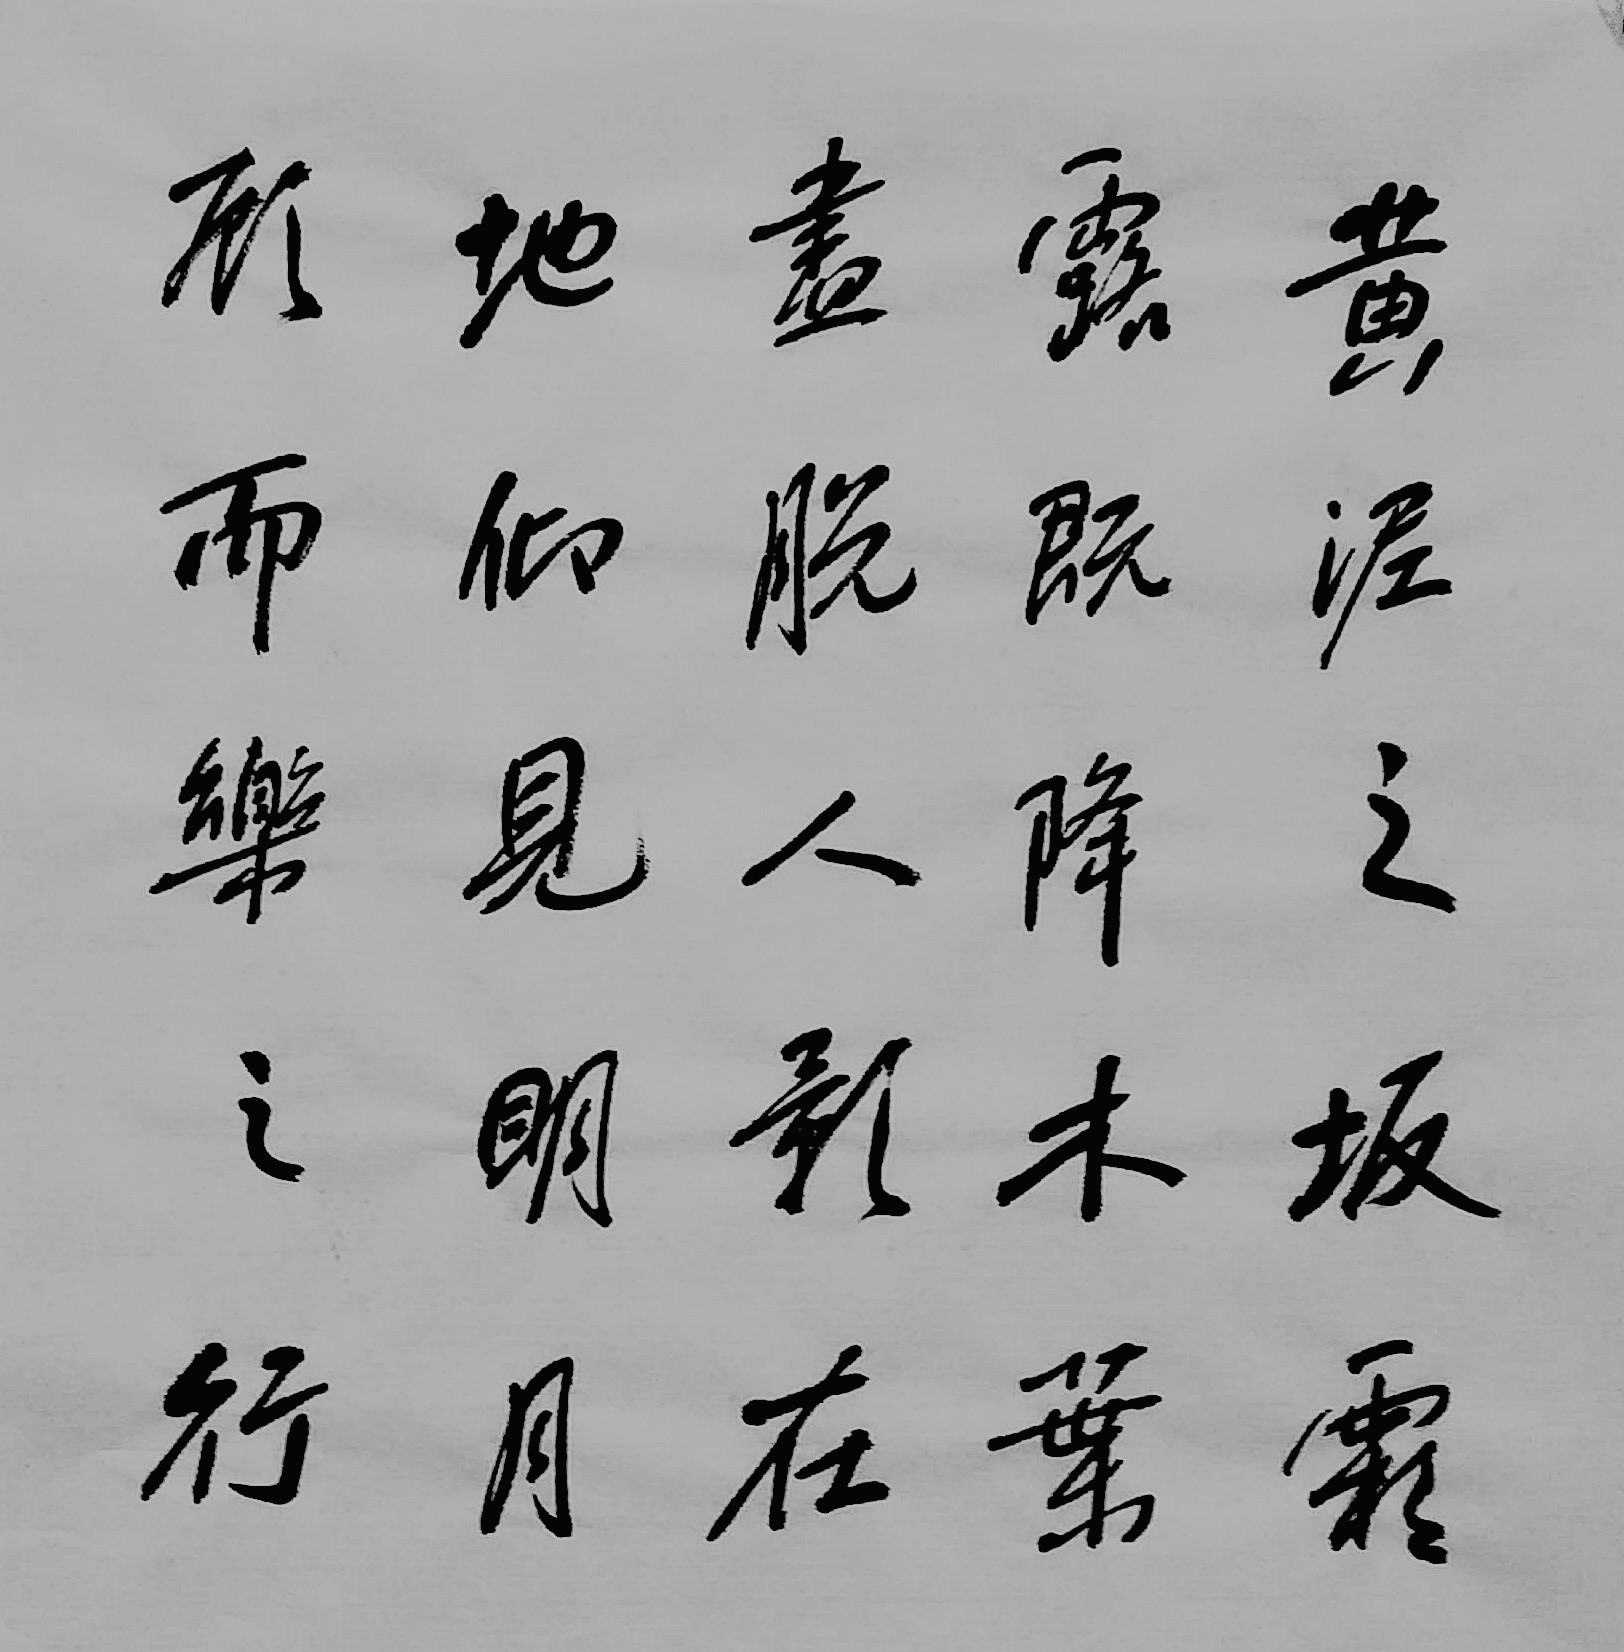 黄泥之坂霜
露既降木葉
盡脱人影在
地仰見明月
顧而樂之行